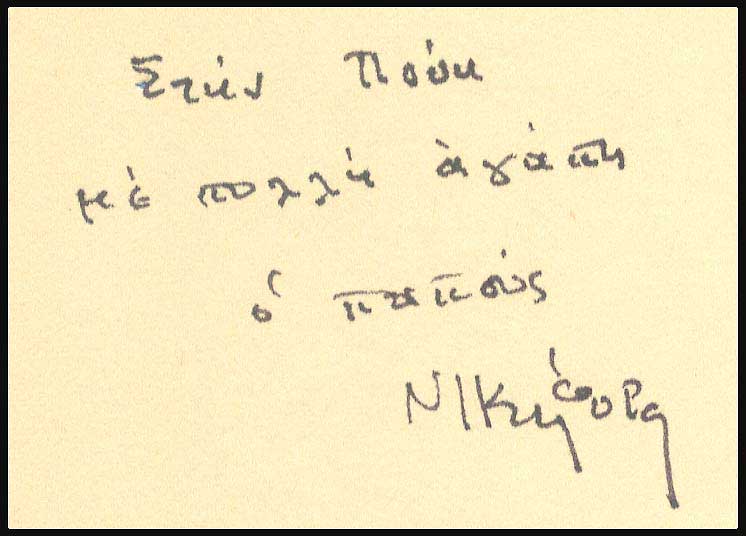 Στήν Πόπη
μέ πολλή ἀγάπη
ὁ παπούς
Νικηφόρος